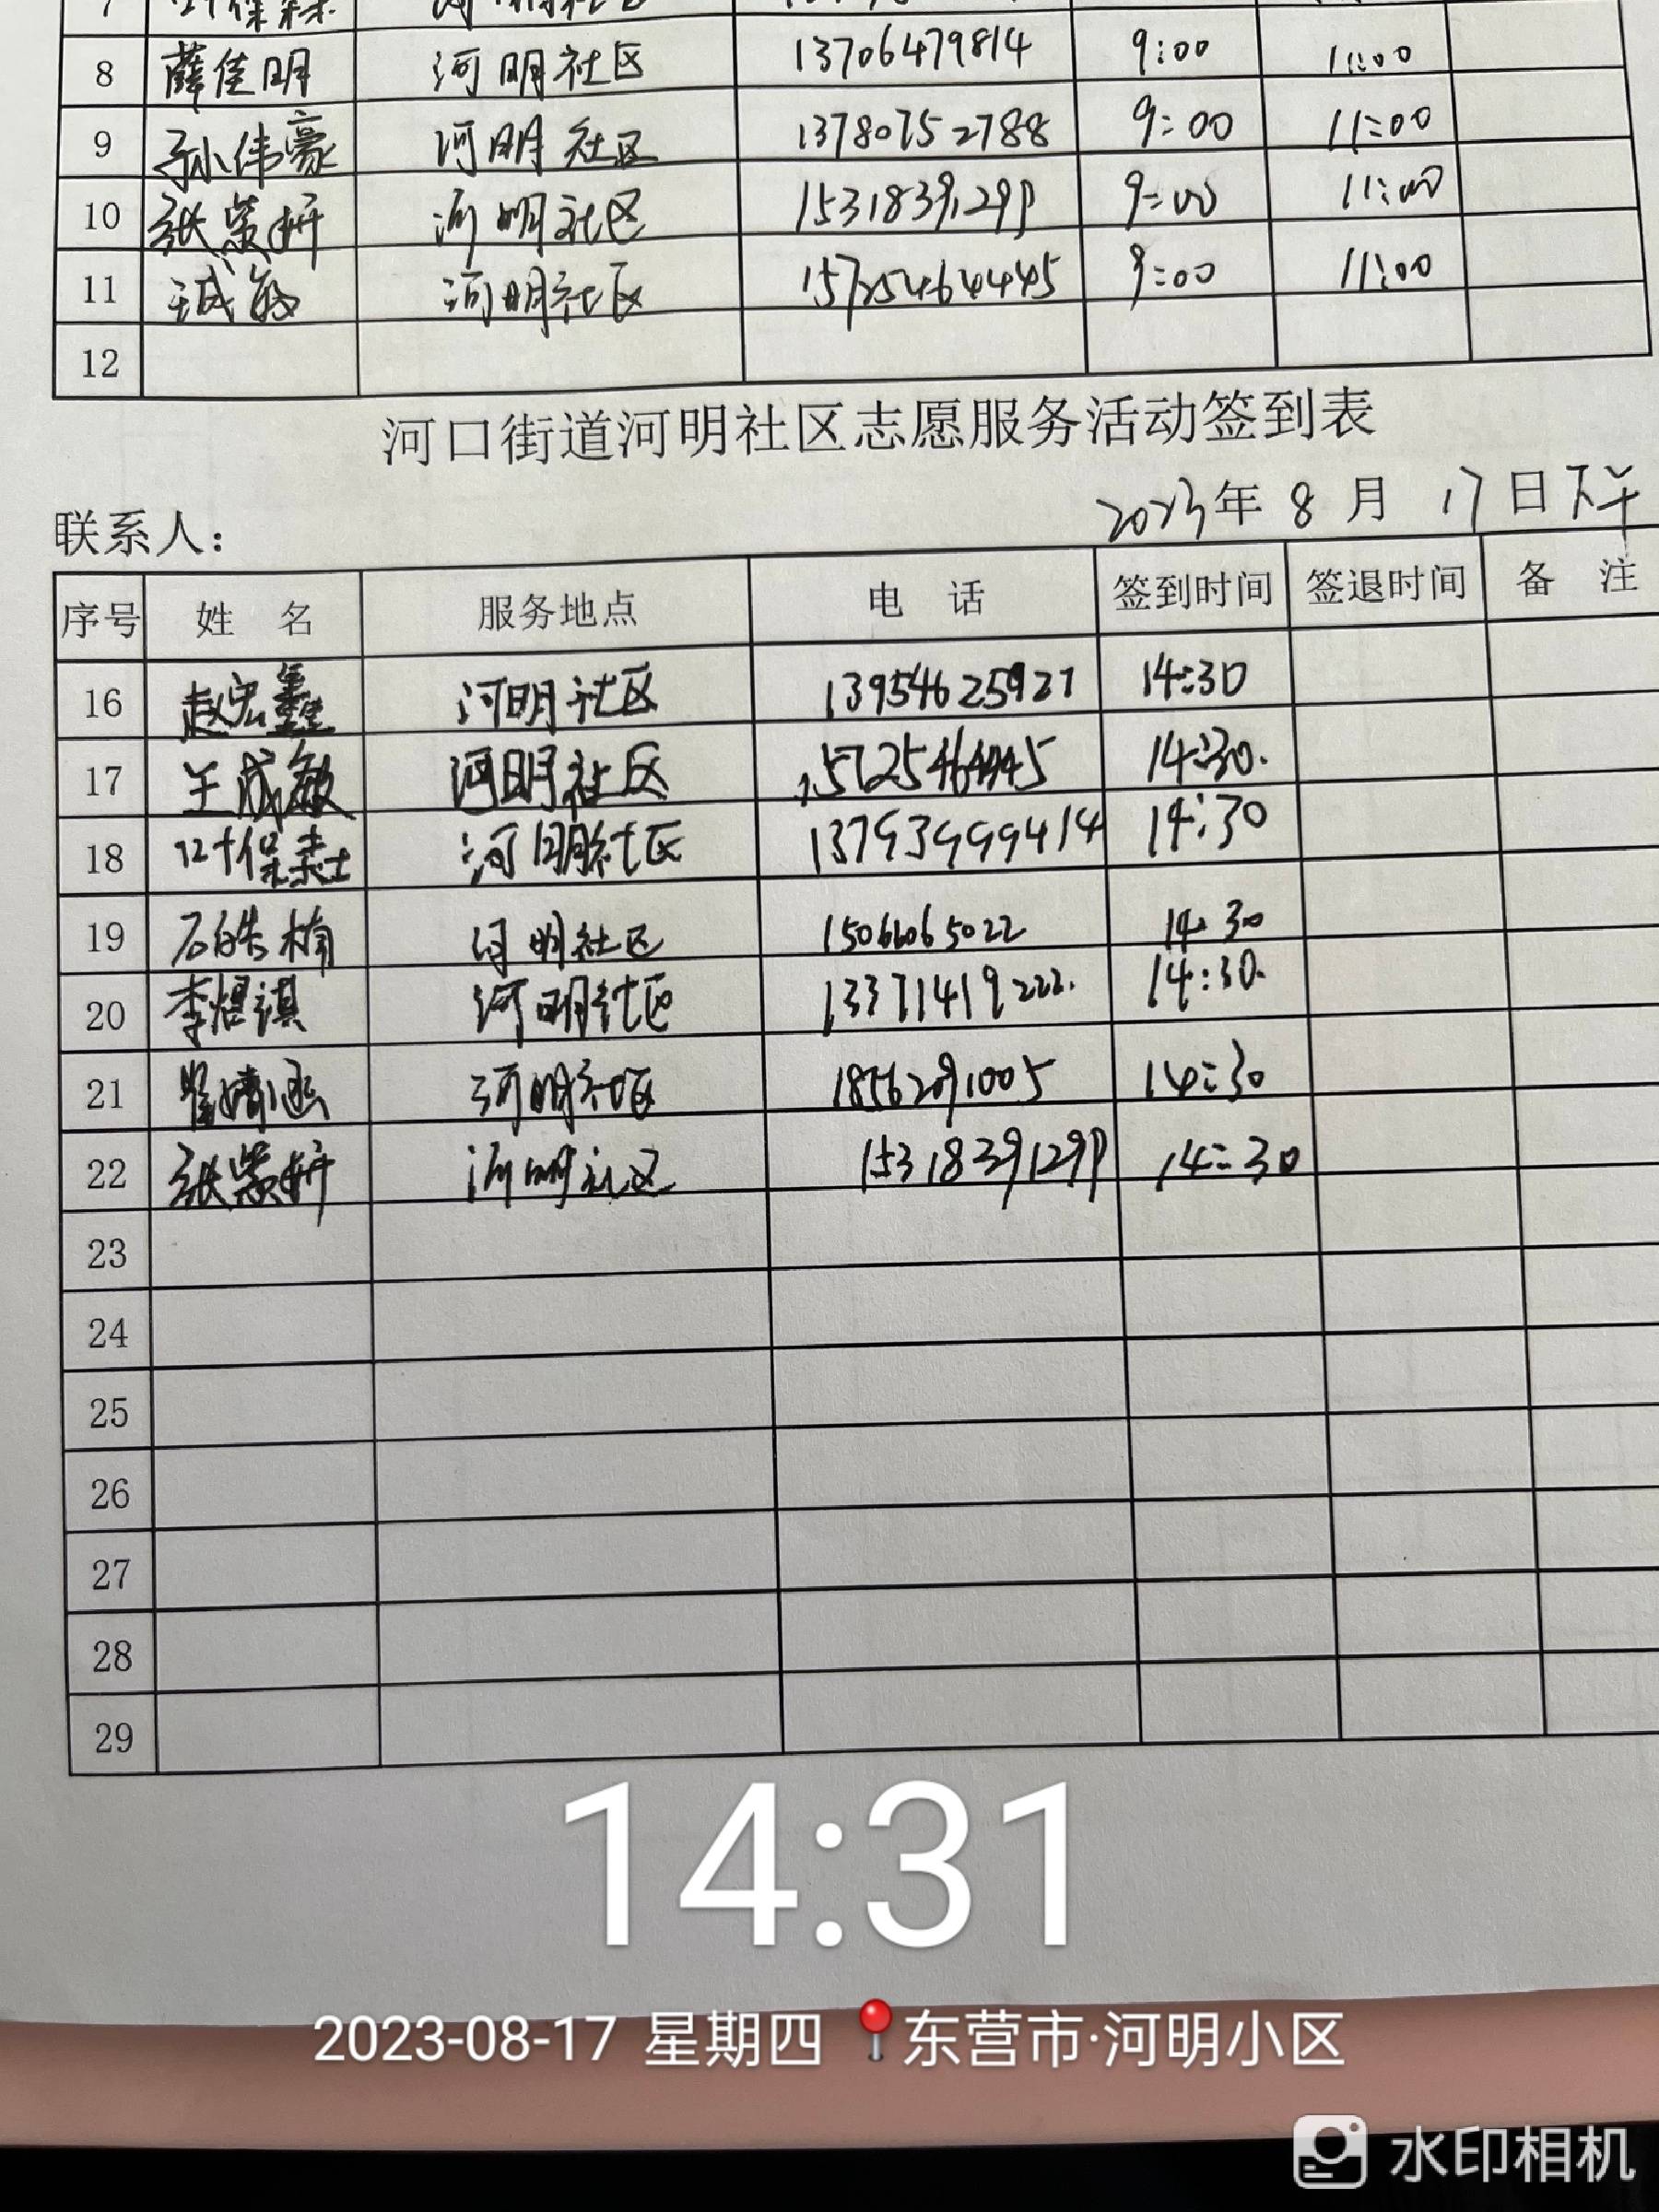 8 薛佳明 河明社区 13706479814 9:00 11:00
9 孙伟豪 河明社区 13780752788 9:00 11:00
10 张紫妍 河明社区 15318391299 9:00 11:00
11 王成敏 河明社区 15725464445 9:00 11:00
12
河口街道河明社区志愿服务活动签到表
2023年8月17日下午
联系人:
序号 姓 名 服务地点 电 话 签到时间 签退时间 备 注
16 赵宏鑫 河明社区 13954625927 14:30
17 王成敏 河明社区 15725464445 14:30.
18 河明社区 13793999414 14:30
19 石皓楠 河明社区 15066065022 14:30
20 李煜祺 河明社区 13371419222. 14:30.
21 河明社区 18562091005 14:30
22 张紫妍 河明社区 15318391299 14:30
23
24
25
26
27
28
29
14:31
2023-08-17 星期四 东营市·河明小区
水印相机